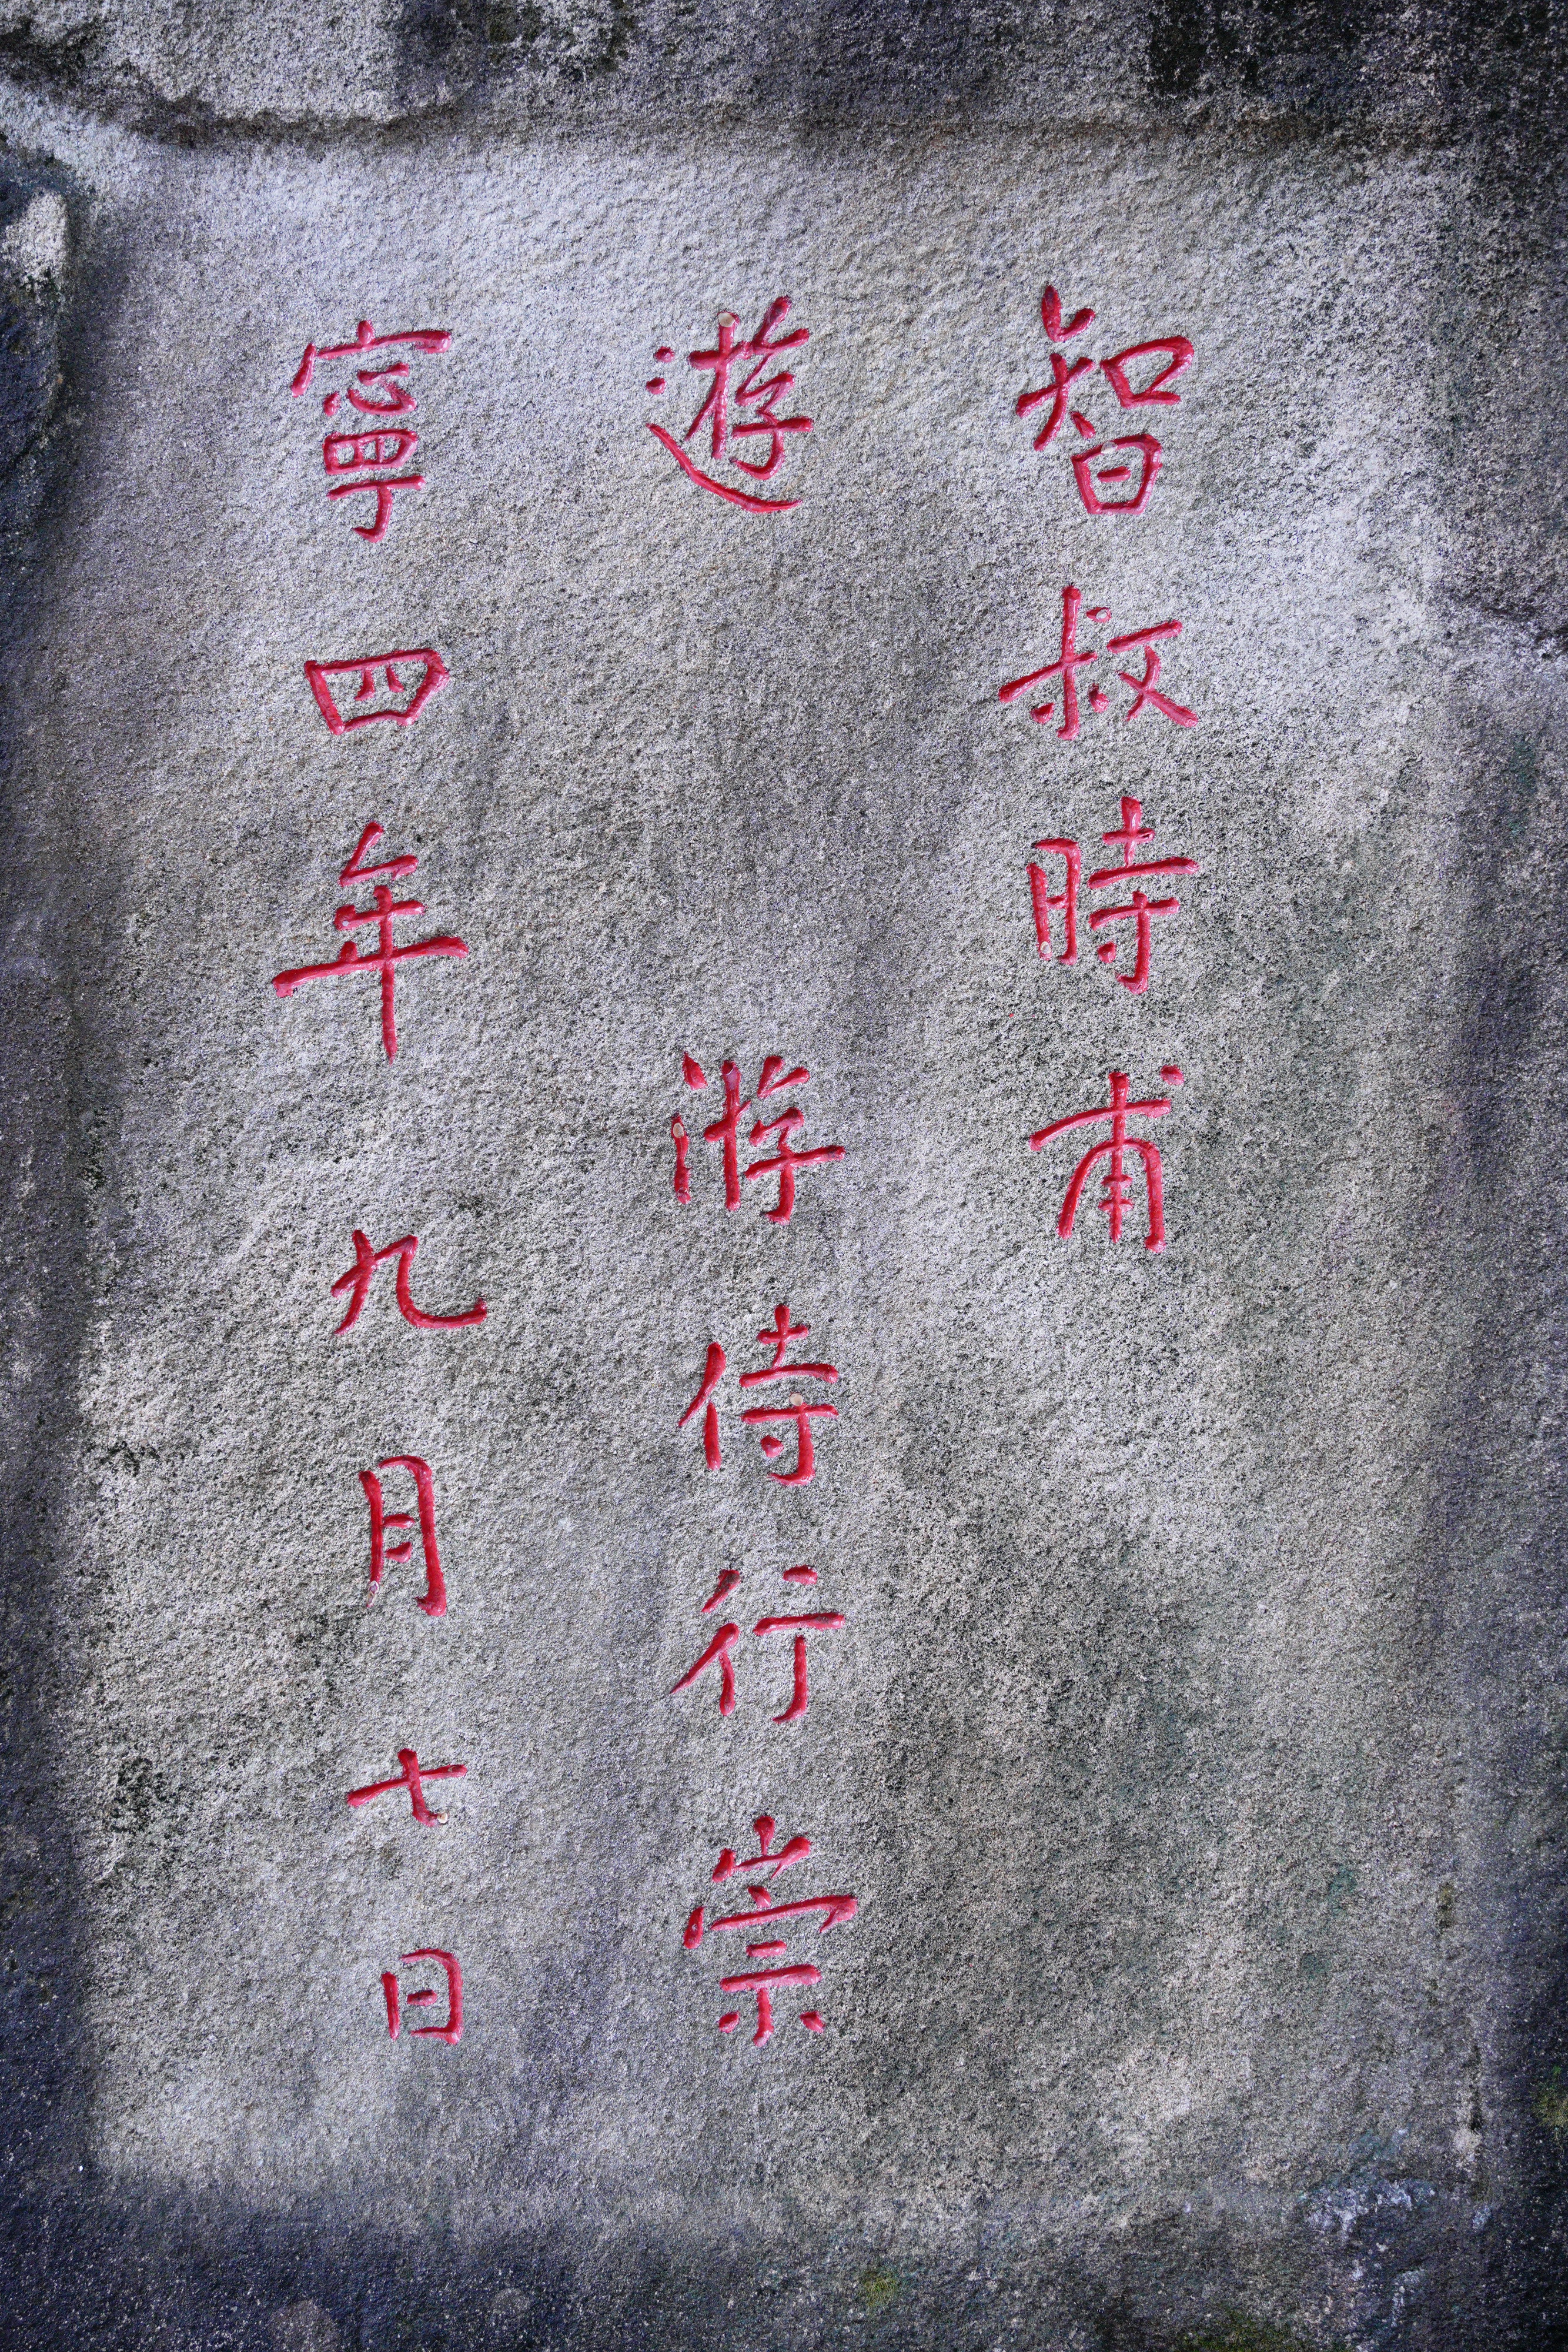 智叔時甫
遊　游侍行崇
寧四年九月七日